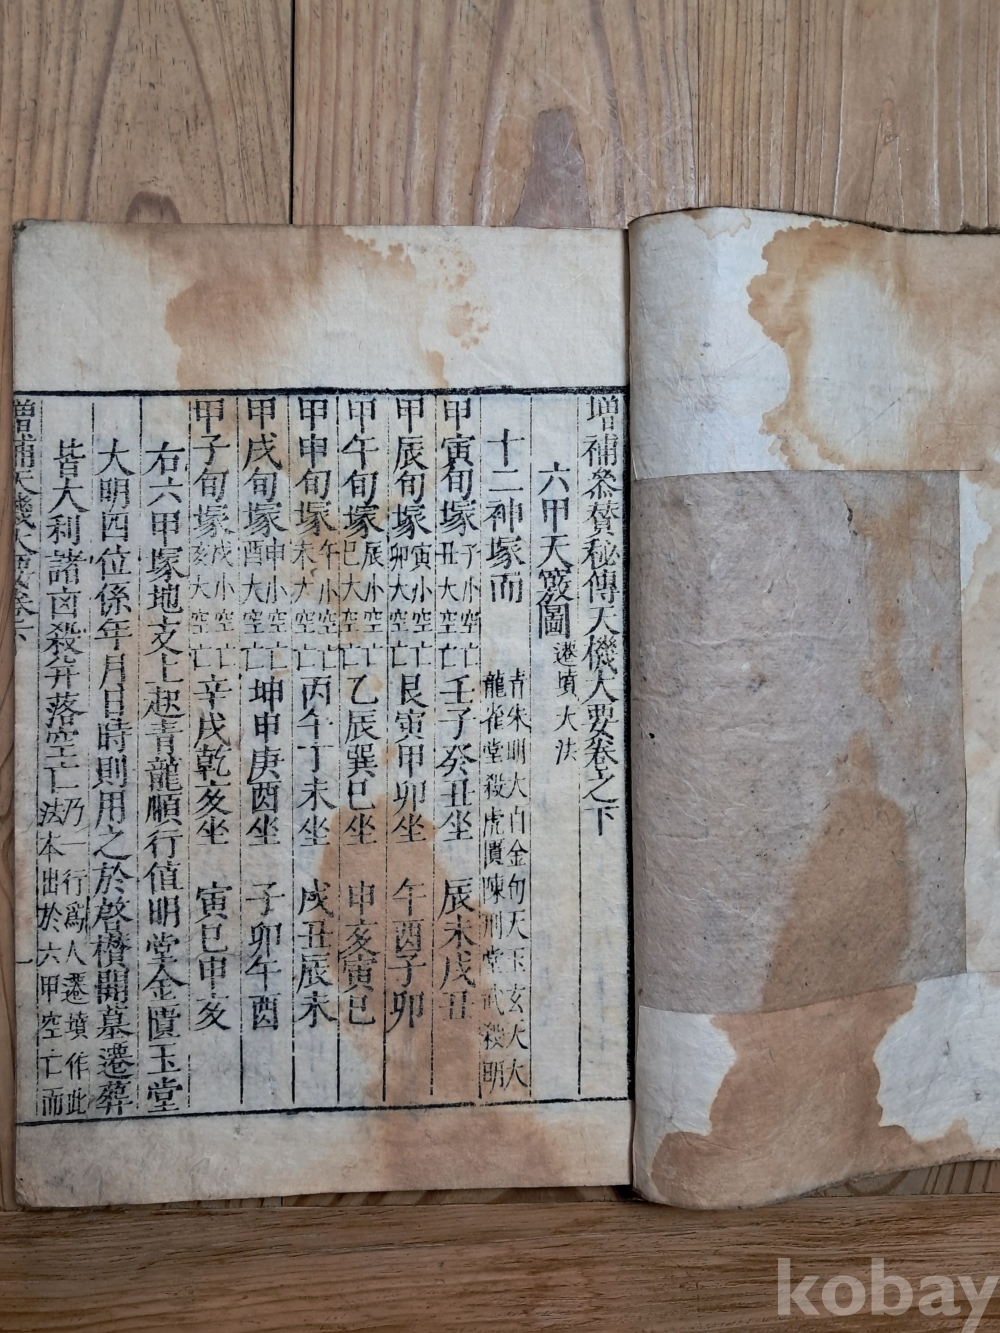 增補叅賛秘傳天機大要卷之下
六甲天竅圖 遷墳大法
十二神塚而 青龍朱雀明堂大殺白虎金匱句陳天刑玉堂玄武天殺大明
甲寅旬塚 子小空亡丑大空亡 壬子癸丑坐 辰未戌丑
甲辰旬塚 寅小空亡卯大空亡 艮寅甲卯坐 午酉子卯
甲午旬塚 辰小空亡巳大空亡 乙辰巽巳坐 申亥寅巳
甲申旬塚 午小空亡未大空亡 丙午丁未坐 戌丑辰未
甲戌旬塚 申小空亡酉大空亡 坤申庚酉坐 子卯午酉
甲子旬塚 戌小空亡亥大空亡 辛戌乾亥坐 寅巳申亥
右六甲塚地支上起青龍順行值明堂金匱玉堂
大明四位係年月日時則用之於啓欑開墓遷葬
皆大利諸凶殺并落空亡 乃一行爲人遷墳作此法本出於六甲空亡而
增補天機大要卷下
一
kobay